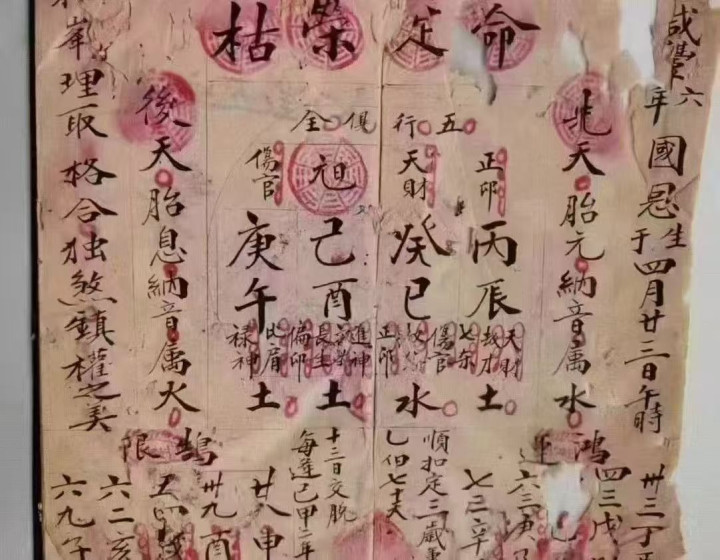 命定榮枯
咸豐六年國恩生于四月廿三日午時
先天胎元納音屬水
五行俱全
正印丙辰土
天財癸巳水
旭己酉土
傷官庚午土
天財
傷官
正印
進神
長生
偏印
比肩
祿神
後天胎息納音屬火
岸理取格合独煞鎮權之美
鴻運
鵠限
卅三丁
四三戊
六三庚子
七三辛
順扣定三歲
乙佃七夫
十三日交脫
每逢己甲二年
廿八申
卅九酉
五四
六二亥
六九子